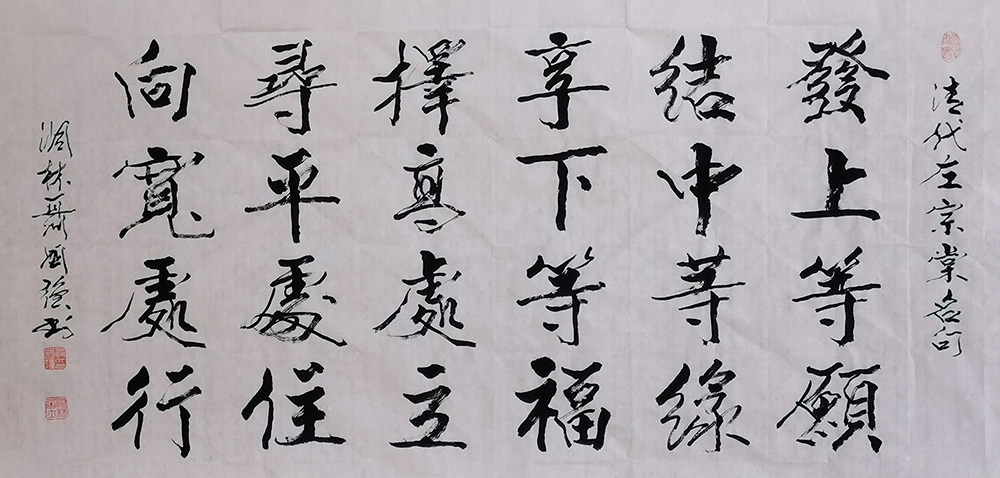 清代左宗棠名句
發上等願
結中等緣
享下等福
擇高處立
尋平處住
向寬處行